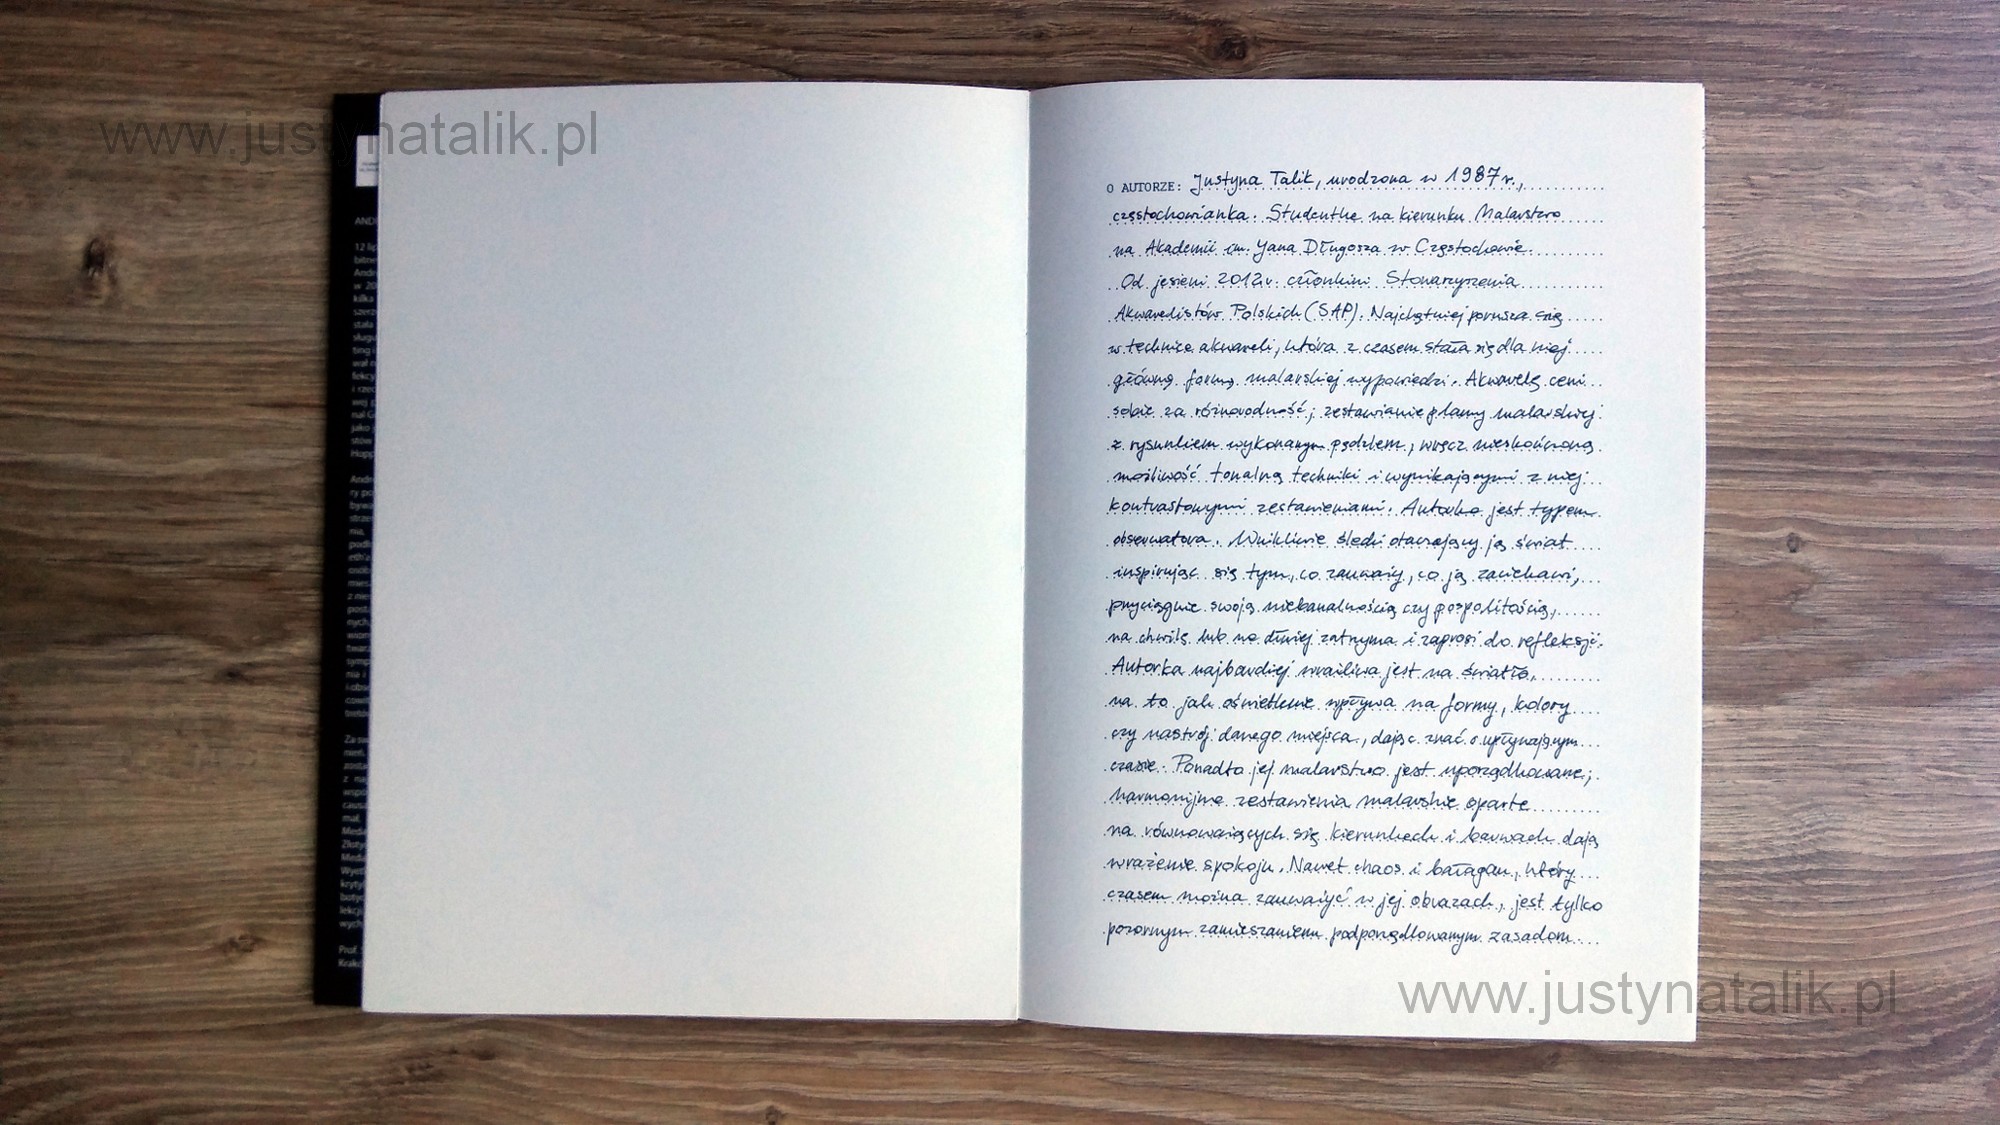 www.justynatalik.pl
O AUTORZE: Justyna Talik, urodzona w 1987 r.,
częstochowianka. Studentka na kierunku Malarstwo
na Akademii im. Jana Długosza w Częstochowie.
Od jesieni 2012 r. członkini Stowarzyszenia
Akwarelistów Polskich (SAP). Najchętniej porusza się
w technice akwareli, która z czasem stała się dla niej
główną formą malarskiej wypowiedzi. Akwarelę ceni
sobie za różnorodność; zestawianie plamy malarskiej
z rysunkiem wykonanym pędzlem, wręcz nieskończoną
możliwość tonalną techniki i wynikającymi z niej
kontrastowymi zestawieniami. Autorka jest typem
obserwatora. Wnikliwie śledzi otaczający ją świat
inspirując się tym, co zauważy, co ją zaciekawi,
przyciągnie swoją niebanalnością czy pospolitością,
na chwilę lub na dłużej zatrzyma i zaprosi do refleksji.
Autorka najbardziej wrażliwa jest na światło,
na to jak oświetlenie wpływa na formy, kolory
czy nastrój danego miejsca, dając znać o upływającym
czasie. Ponadto jej malarstwo jest uporządkowane;
harmonijne zestawienia malarskie oparte
na równoważących się kierunkach i barwach dają
wrażenie spokoju. Nawet chaos i bałagan, który
czasem można zauważyć w jej obrazach, jest tylko
pozornym zamieszaniem podporządkowanym zasadom
www.justynatalik.pl